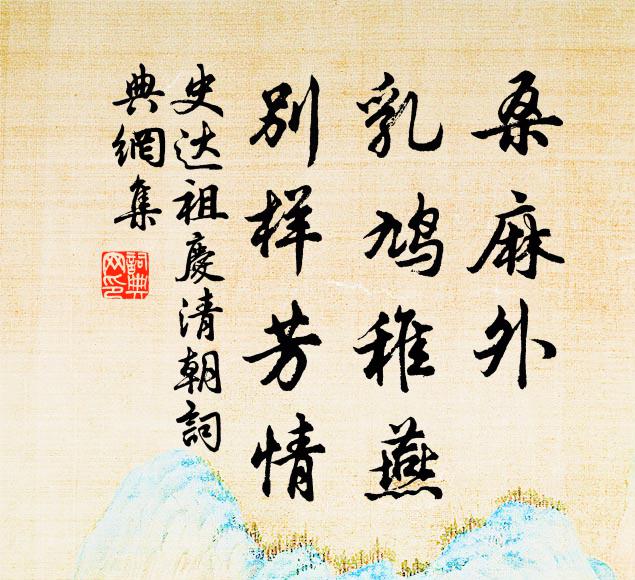 桑麻外
乳鸠稚燕
别样芳情
史达祖慶清朝詞
典網集
詞典網印